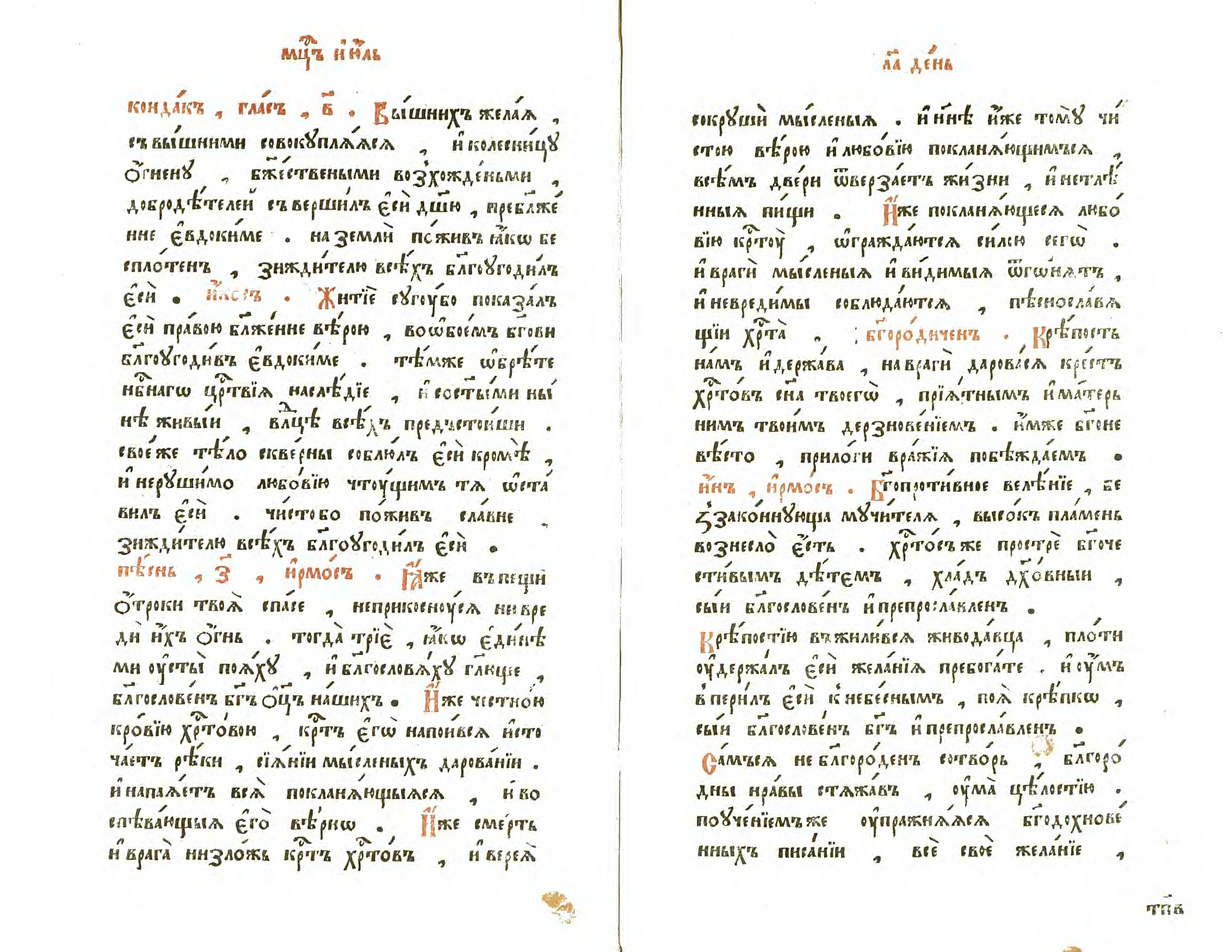 мц҃ъ и҆ю҆́ль
конда́къ , гла́съ , в҃ . Вы́шнихъ жела́ѧ ,
съ вы́шними совокꙋплѧ́ѧсѧ , и҆ колесни́цꙋ
ѻ҆́гненꙋ , бж҃е́ствеными возхожде́ньми ,
добродѣ́телей съвершилъ є҆сѝ дш҃ю , пребл҃же́
нне є҆вдоки́ме . на землѝ пожи́въ ꙗ҆́кѡ бе
спло́тенъ , зижди́телю всѣ́хъ бл҃гоꙋгоди́лъ
є҆сѝ . и҆́косъ . Житїѐ сꙋгꙋ́бо показа́лъ
є҆сѝ пра́вою бл҃же́нне вѣ́рою , во ѡ҆бое́мъ бг҃ови
бл҃гоꙋгоди́въ є҆вдоки́ме . тѣ́мже ѡ҆брѣ́те
нб҃нагѡ црⷭ҇твїѧ наслѣ́дїе , и҆ со ст҃ы́ми ны́
нѣ живы́и , влⷣцѣ всѣ́хъ предъстои́ши .
свое́же тѣ́ло скве́рны соблю́лъ є҆сѝ кромѣ̀ ,
и҆ нерꙋши́мо любо́вїю чтꙋ́щимъ тѧ ѡ҆ста́
вилъ є҆сѝ . чи́стобо пожи́въ сла́вне
зижди́телю всѣ́хъ бл҃гоꙋгоди́лъ є҆сѝ .
пѣ́снь , з҃ , и҆рмо́съ . Ꙗ҆́же въ пещи́
ѻ҆́троки твоѧ̀ спа́се , неприкоснꙋ́сѧ ни вре
дѝ и҆́хъ ѻ҆́гнь . тогда̀ трїѐ , ꙗ҆́кѡ є҆ди́нѣ
ми ᲂу҆сты̀ поѧ́хꙋ , и҆ бл҃гословѧ́хꙋ гл҃юще ,
бл҃гослове́нъ бг҃ъ ѻ҆ц҃ъ на́шихъ . И҆́же честно́ю
кро́вїю хрⷭ҇то́вою , крⷭ҇тъ є҆гѡ̀ напои́всѧ и҆сто
ча́етъ рѣ́ки , сїѧ́нїи мы́сленыхъ дарова́нїи .
и҆ напаѧ́етъ всѧ̀ покланѧ́ющыѧсѧ , и҆ во
спѣва́ющыѧ є҆гѡ̀ вѣ́рнѡ . И҆́же сме́рть
и҆ врага̀ низло́жь крⷭ҇тъ хрⷭ҇то́въ , и҆ вереѧ̀
л҃а де́нь
сокрꙋшѝ мы́сленыѧ . и҆ нн҃ѣ и҆́же томꙋ̀ чи́
стою вѣ́рою и҆ любо́вїю покланѧ́ющимъсѧ ,
всѣ́мъ двери ѿверза́етъ жи́зни , и҆ нетлѣ́
нныѧ пи́щи . И҆́же покланѧ́ющесѧ любо́
вїю крⷭ҇тꙋ̀ , ѡ҆гражда́ютсѧ си́лою сегѡ̀ .
и҆ врагѝ мы́сленыѧ и҆ ви́димыѧ ѿгѡнѧ́тъ ,
и҆ невреди́мы соблюда́ютсѧ , пѣснославѧ́
щїи хрⷭ҇та̀ . бг҃оро́диченъ . Крѣ́пость
на́мъ и҆ держа́ва , на врагѝ дарова́сѧ кре́стъ
хрⷭ҇то́въ сн҃а твоегѡ̀ , прїѧ́тнымъ и҆ ма́терь
нимъ твои́мъ дерзнове́нїемъ . и҆́мже бг҃оне
вѣ́сто , прило́ги вра́жїѧ побѣжда́емъ .
и҆́нъ , и҆рмо́съ . Бг҃опроти́вное велѣ́нїе , бе
ззако́ннꙋюща мꙋчи́телѧ , высо́къ пла́мень
вознесло̀ є҆́сть . хрⷭ҇то́съ же прострѐ бг҃оче
сти́вымъ дѣ́темъ , хла́дъ дх҃о́вныи ,
сы́и бл҃гослове́нъ и҆ препросла́вленъ .
Крѣ́постїю въжили́всѧ живода́вца , пло́ти
ᲂу҆держа́лъ є҆сѝ жела́нїѧ пребога́те . и҆ ᲂу҆́мъ
вперилъ є҆сѝ к҆ небе́снымъ , поѧ̀ крѣ́пкѡ ,
сы́и бл҃гослове́нъ бг҃ъ и҆ препросла́вленъ .
Са́мъсѧ не бл҃горо́денъ сотво́рь , бл҃горо́
дны нра́вы стѧжа́въ , ᲂу҆ма̀ цѣ́лостїю .
поꙋче́нїемъже ᲂу҆пражнѧ́ѧсѧ бг҃одохнове́
нныхъ писа́нїи , всѐ своѐ жела́нїе ,
тп҃в